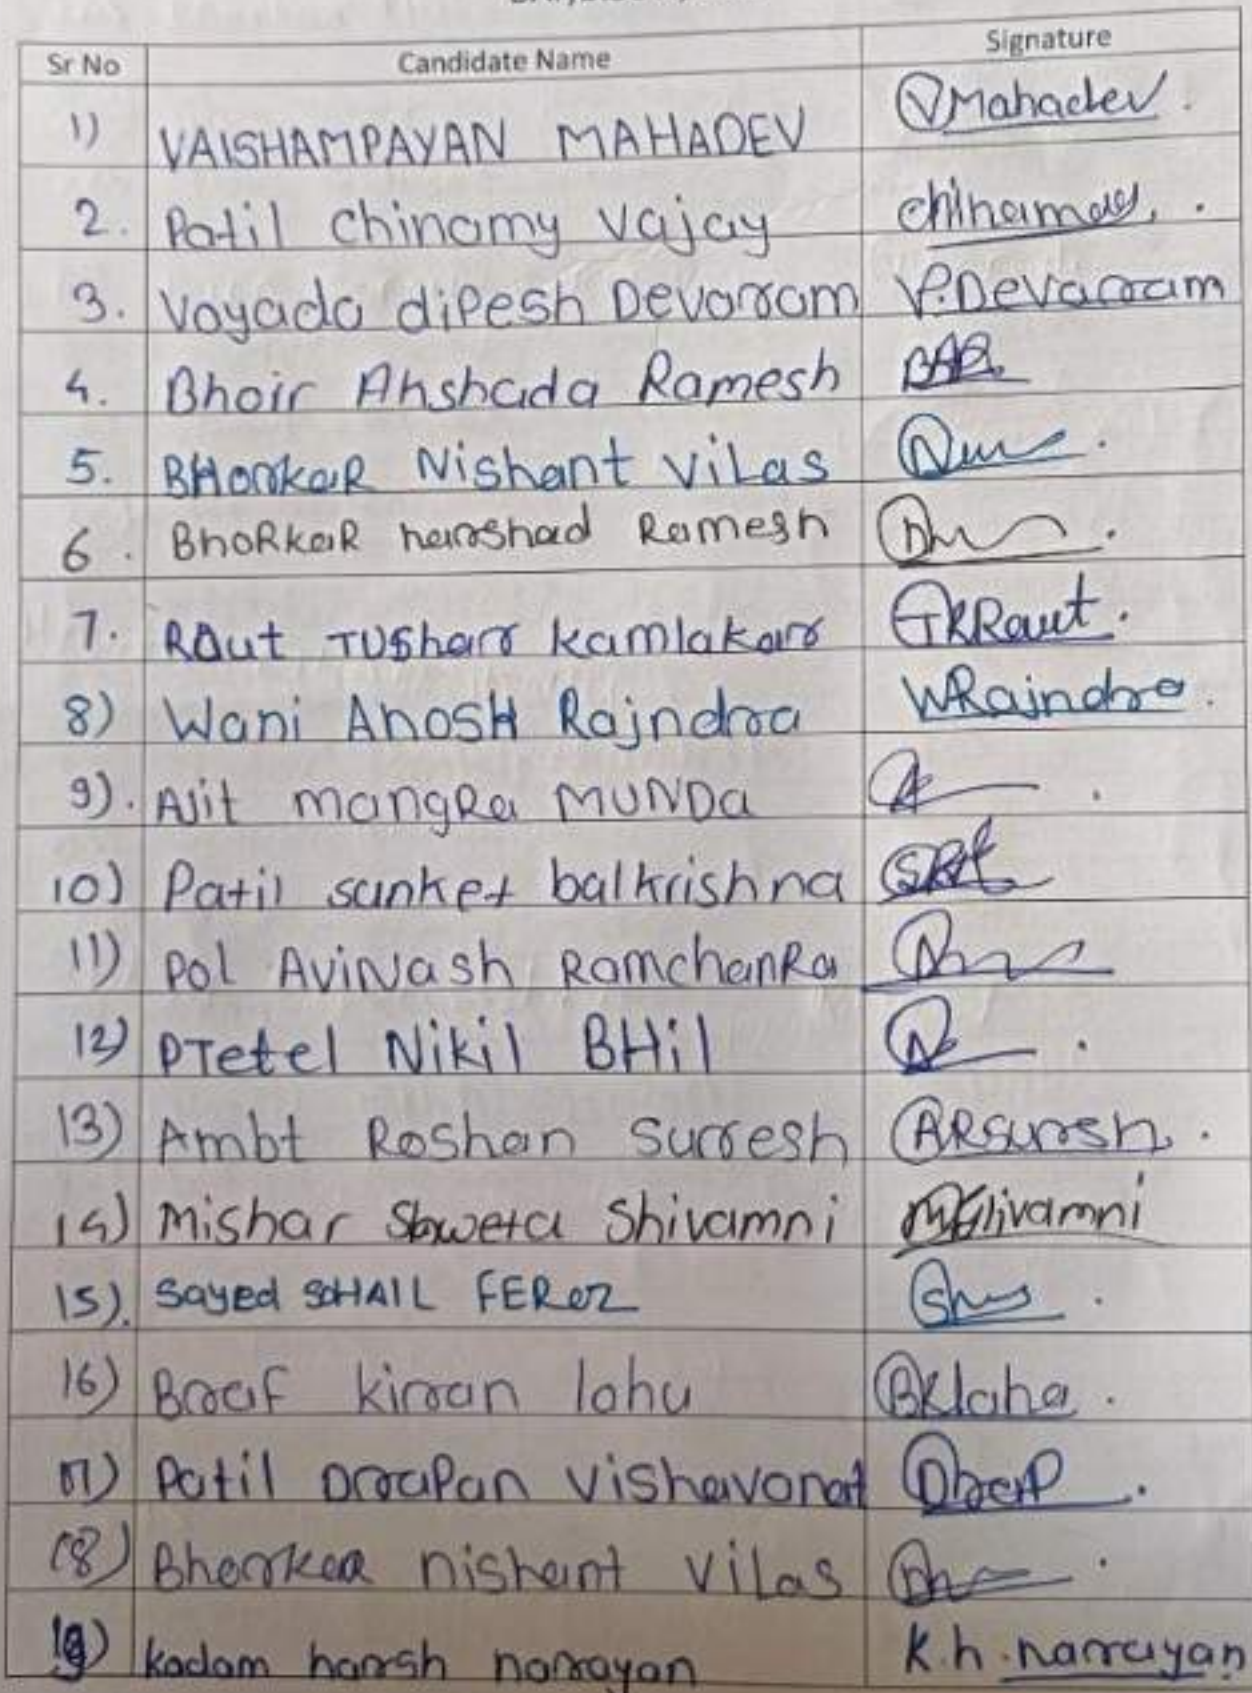 Sr No Candidate Name Signature
1) VAISHAMPAYAN MAHADEV VMahadev.
2. Patil Chinamy Vajay chinamay.
3. Vayada dipesh Devaram V.Devaram
4. Bhoir Ahshada Ramesh BAR
5. BHorkaR Nishant viLas
6. BhoRkaR harshad Ramesh
7. RAut TUShar kamlakar TKRaut.
8) Wani AnosH Rajndra WRajndra.
9). Ajit mangRa MUNDa
10) Patil sanket balkrishna
11) Pol AviNash RamchanRa
12) PTetel Nikil BHil
13) Ambt Roshan Suresh ARSuresh.
14) Mishar Shweta Shivamni MShivamni
15). Sayed SOHAIL FERoz
16) Baraf kiran lahu BKlaha.
17) Patil DraPan vishavanat
18) Bhorkar nishant Vilas
19) kadam harsh narayan K.h.narayan